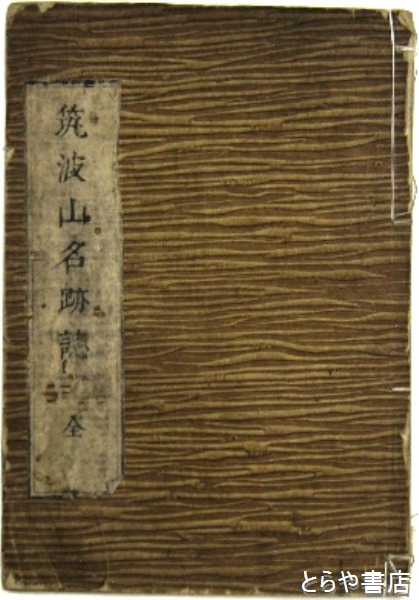 筑波山名跡誌
全
とらや書店